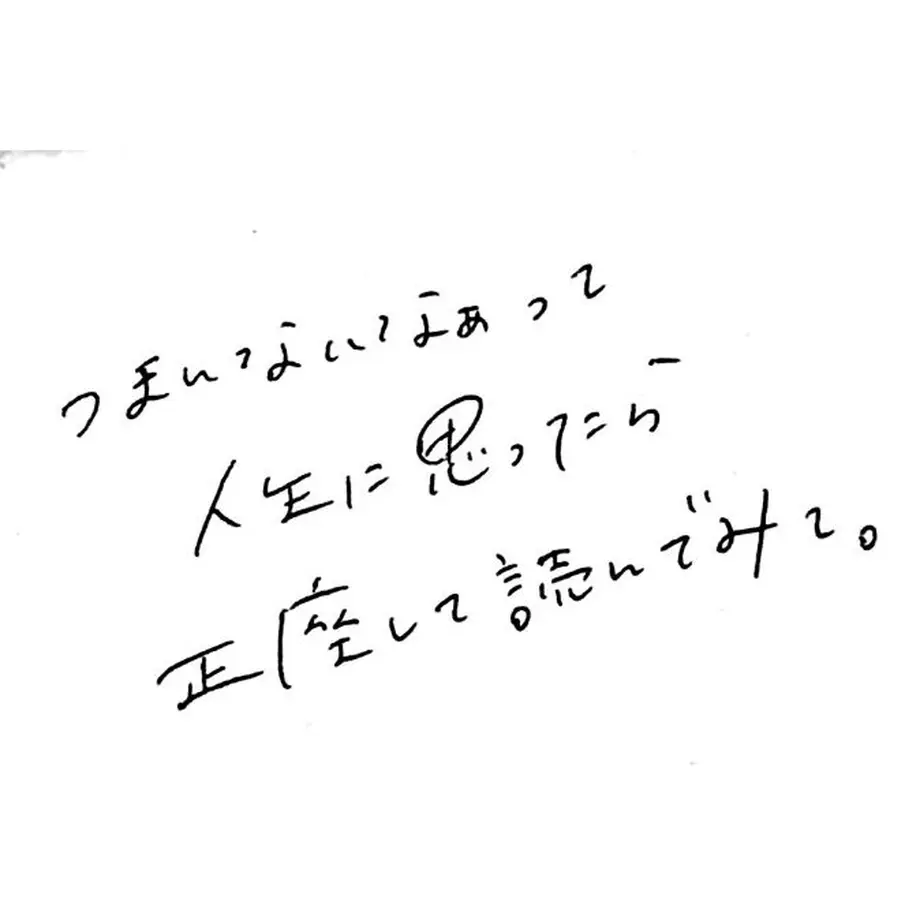 つまんないなぁって
人生に思ったら
正座して読んでみて。